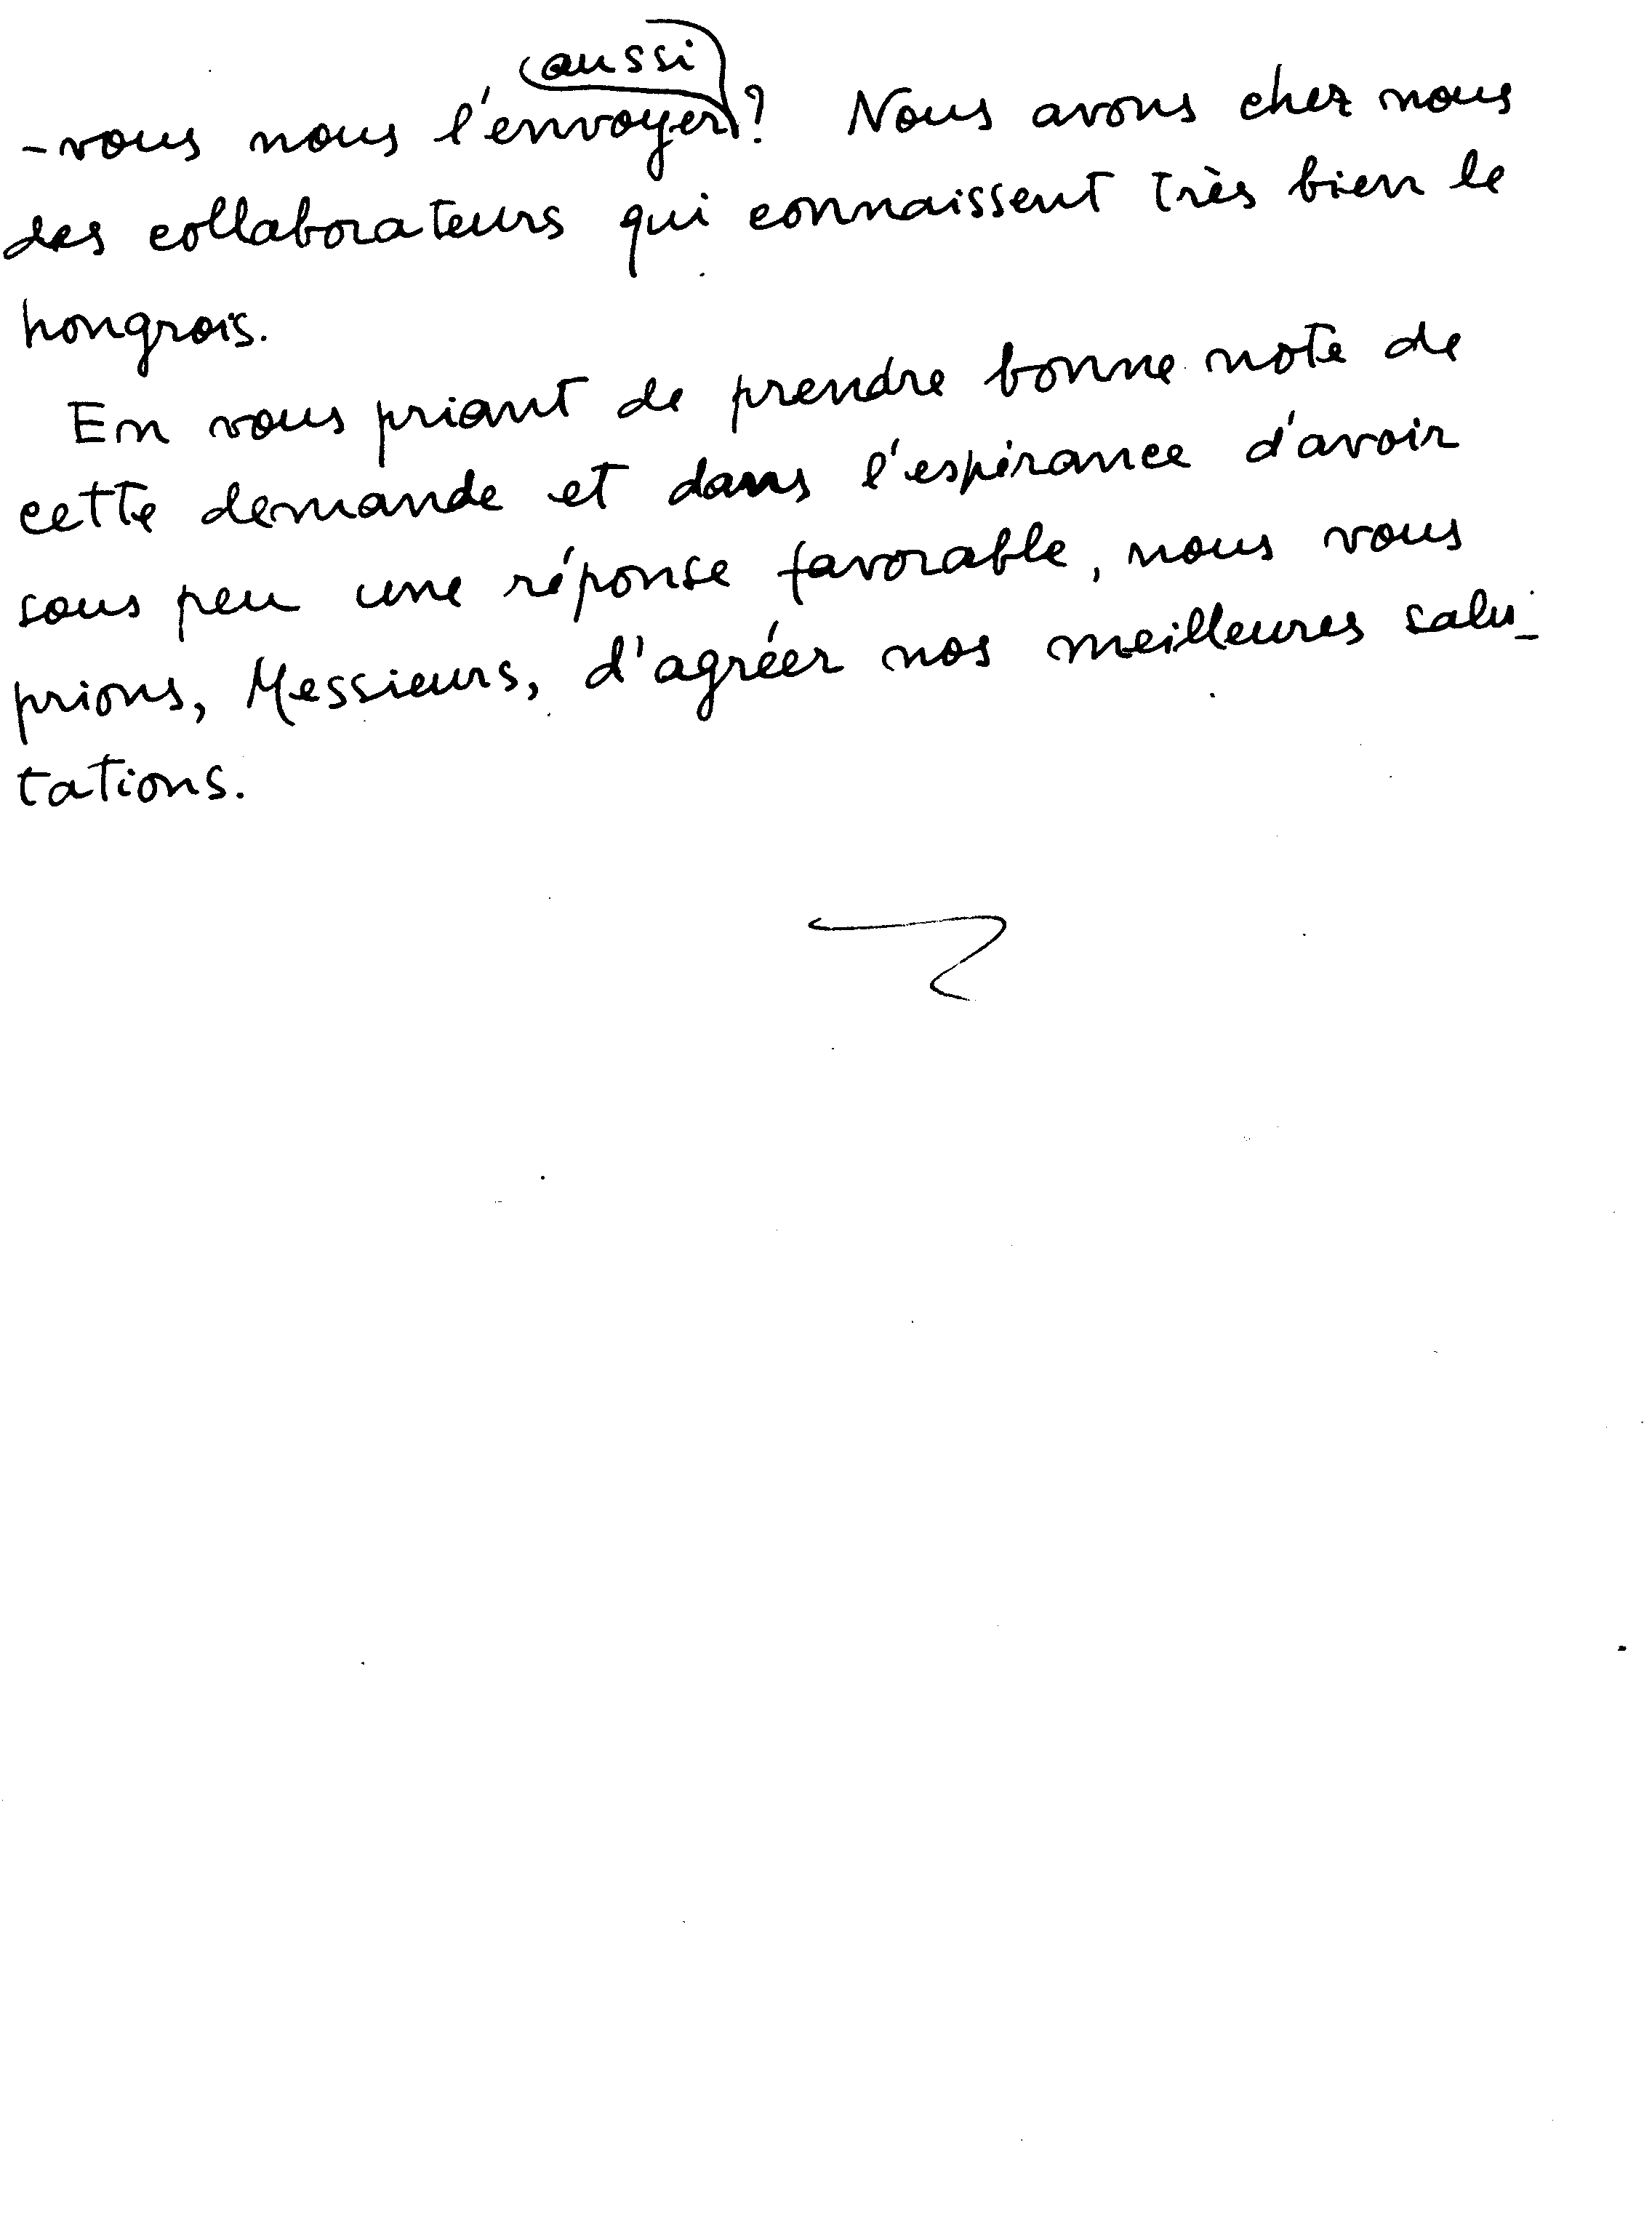 aussi
-vous nous l'envoyer? Nous avons chez nous
des collaborateurs qui connaissent très bien le
hongrois.
En vous priant de prendre bonne note de
cette demande et dans l'espérance d'avoir
sous peu une réponse favorable, nous vous
prions, Messieurs, d'agréer nos meilleures salu-
tations.